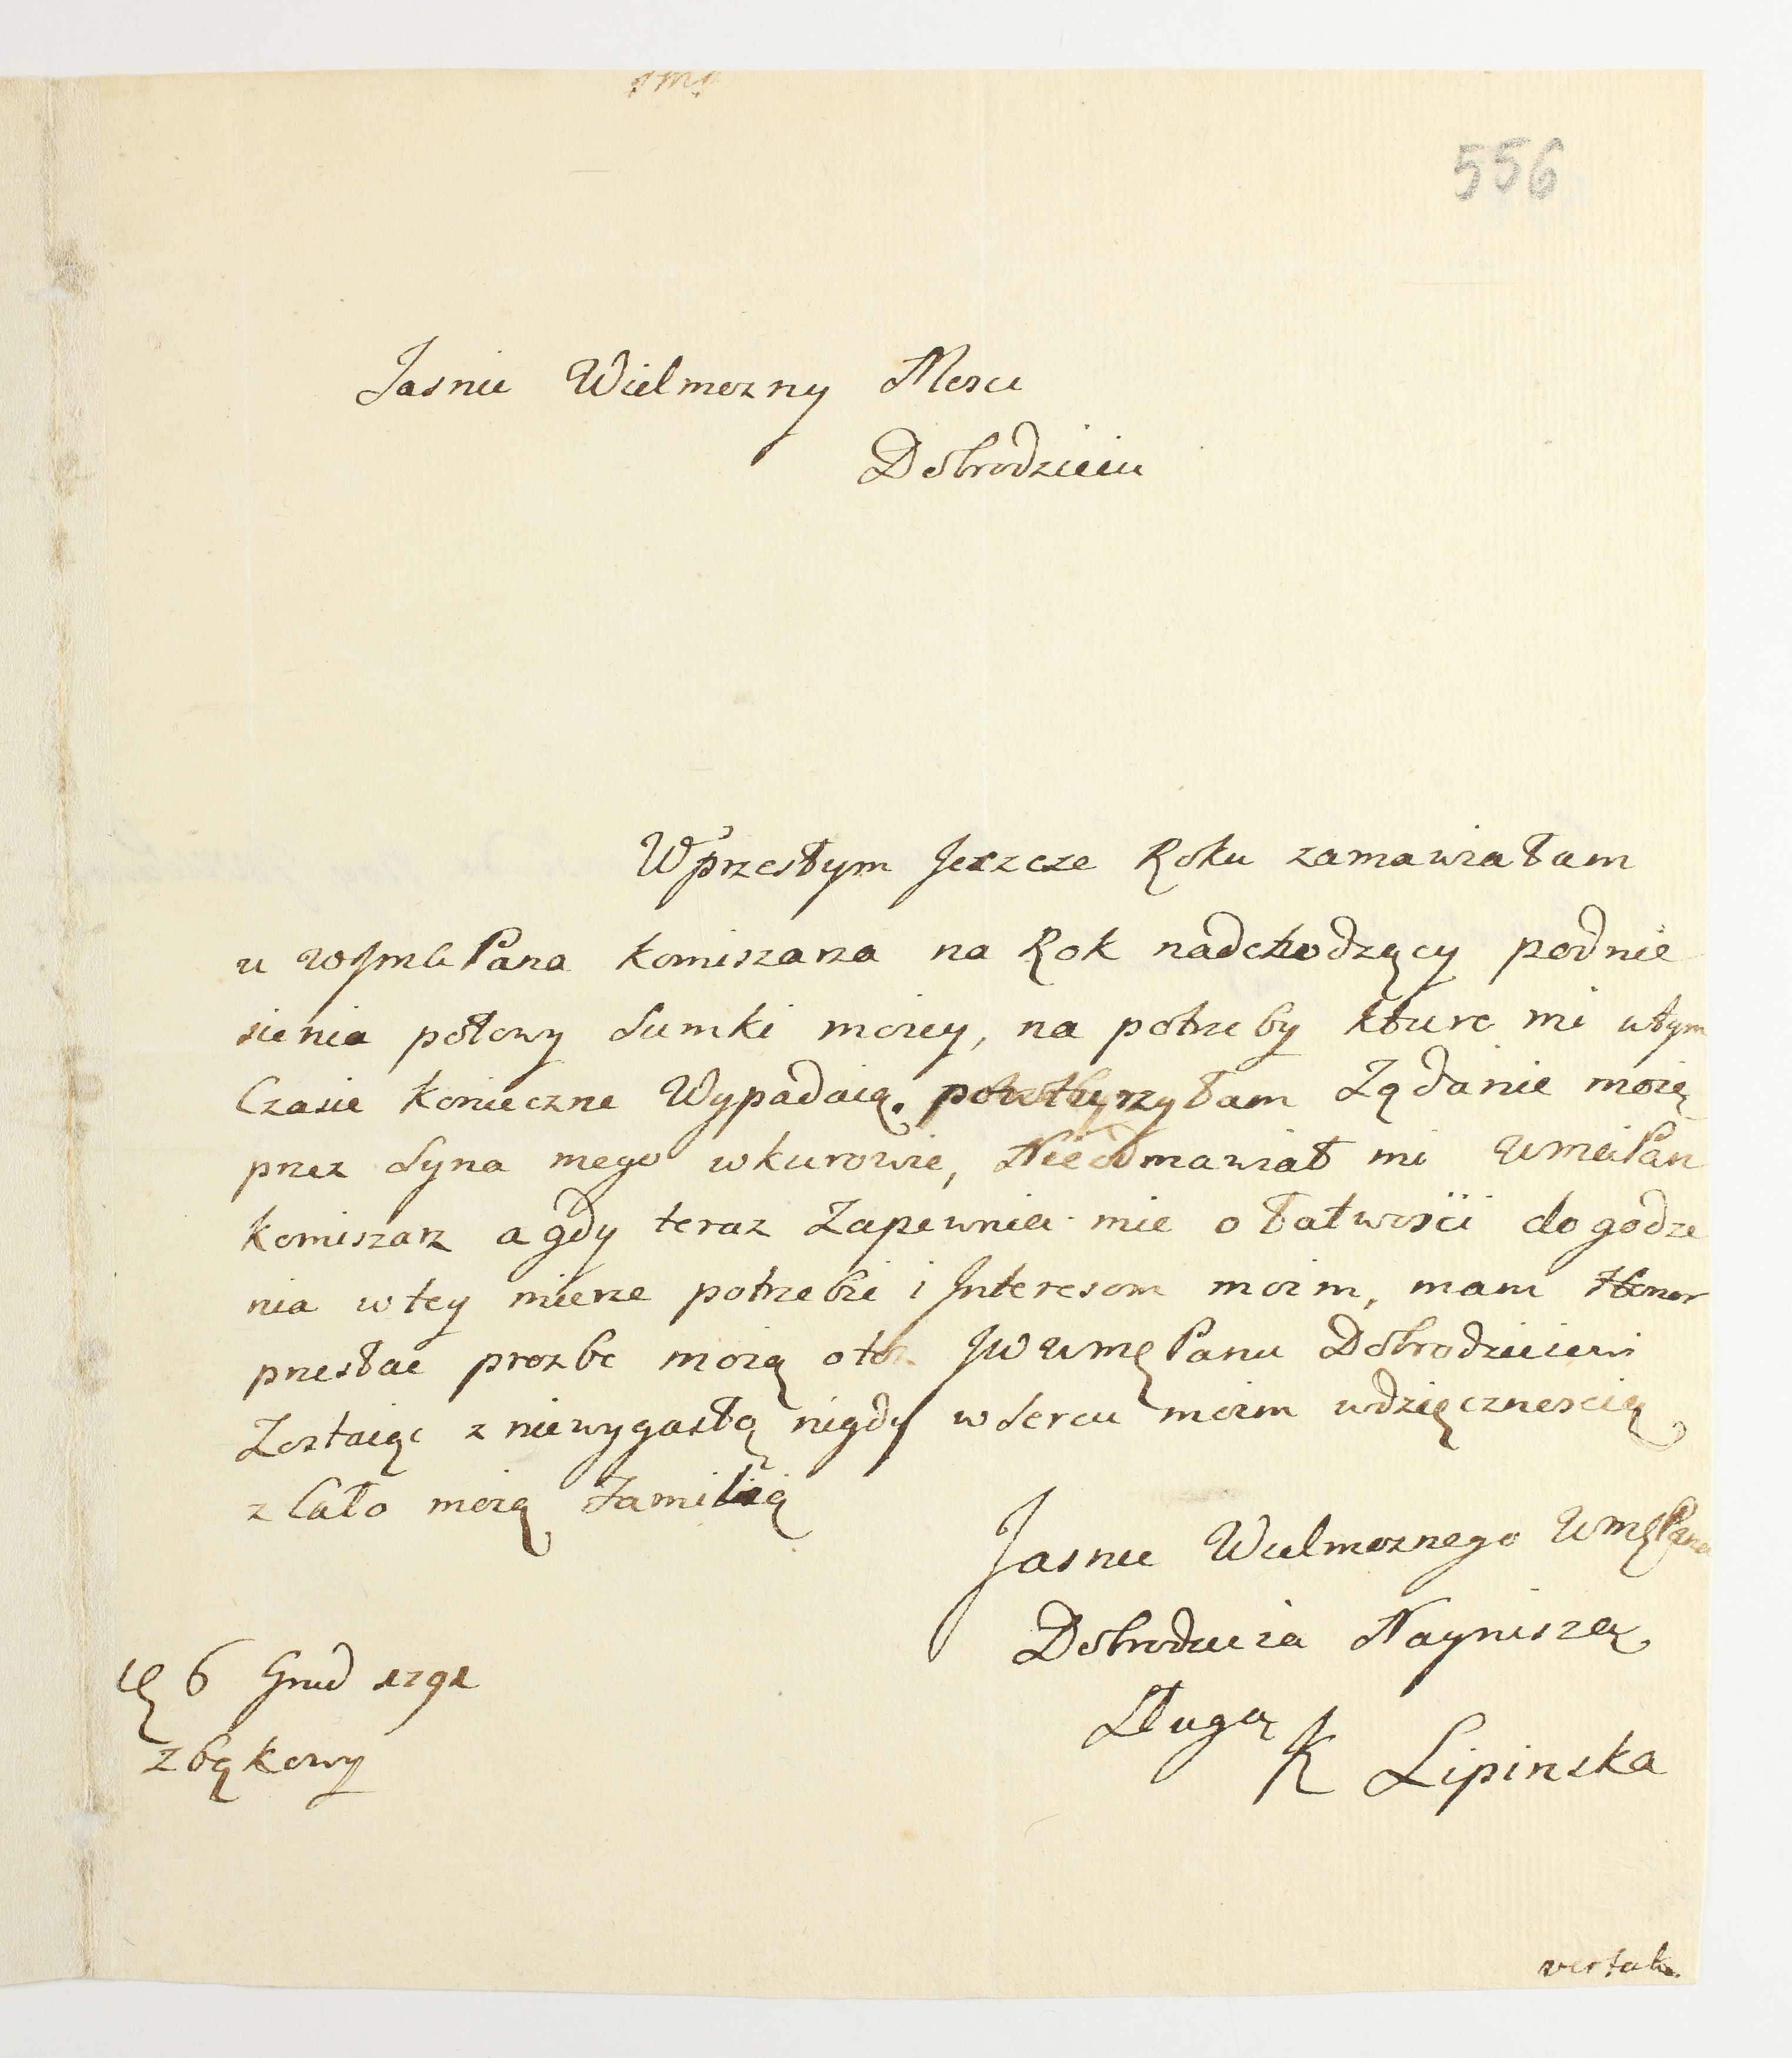 556
Jasnie Wielmozny Mosci
Dobrodzieiu
W przesłym Jeszcze Roku zamawiałam
u WJmCi Pana Komisarza na Rok nadchodzący podnie
sienia połowy Sumki moiey, na potrzeby kture mi wtym
Czasie Konieczne Wypadaią. Żądanie moię
przez Syna mego wkurowie, Nieodmawiał mi WmciPan
Komisarz a gdy teraz Zapewnia mie o Łatwości dogodze
nia w tey mierze potrzebie i Interesom moim, mam Honor
przesłać prozbe moią oto JWWMę Panu Dobrodzieiewi
Zostaiąc z niewygasłą nigdy w Sercu moim wdzięcznoscią
z Cało moią Familią
Jasnie Wielmoznego WMęPana
Dobrodzieia Nayniszą
Sługą
K Lipinska
6 Grud 1791
z bąkowy
vertatur